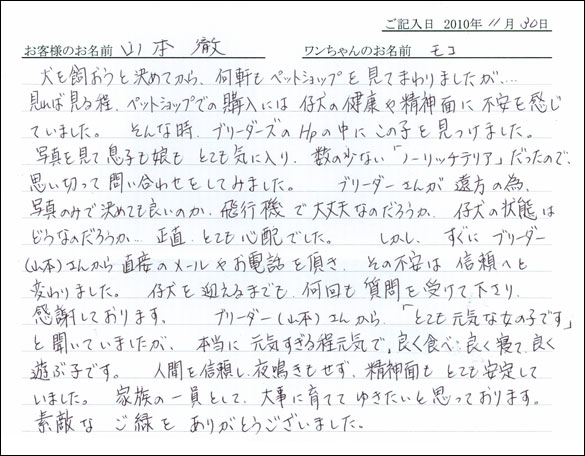 ご記入日 2010年 11月 30日
お客様のお名前 山本 徹 ワンちゃんのお名前 モコ
犬を飼おうと決めてから、何軒もペットショップを見てまわりましたが…
見れば見る程、ペットショップでの購入には仔犬の健康や精神面に不安を感じ
ていました。 そんな時、ブリーダーズのHpの中にこの子を見つけました。
写真を見て息子も娘もとても気に入り、数の少ない「ノーリッチテリア」だったので、
思い切って問い合わせをしてみました。 ブリーダーさんが遠方の為、
写真のみで決めても良いのか、飛行機で大丈夫なのだろうか、仔犬の状態は
どうなのだろうか… 正直、とても心配でした。 しかし、すぐにブリーダー
(山本)さんから直接のメールやお電話を頂き、その不安は信頼へと
変わりました。 仔犬を迎えるまでも、何回も質問を受けて下さり、
感謝しております。 ブリーダー(山本)さんから、「とても元気な女の子です」
と聞いていましたが、本当に元気すぎる程元気で、良く食べ、良く寝て、良く
遊ぶ子です。 人間を信頼し、夜鳴きもせず、精神面もとても安定して
いました。 家族の一員として、大事に育ててゆきたいと思っております。
素敵な ご縁を ありがとうございました。